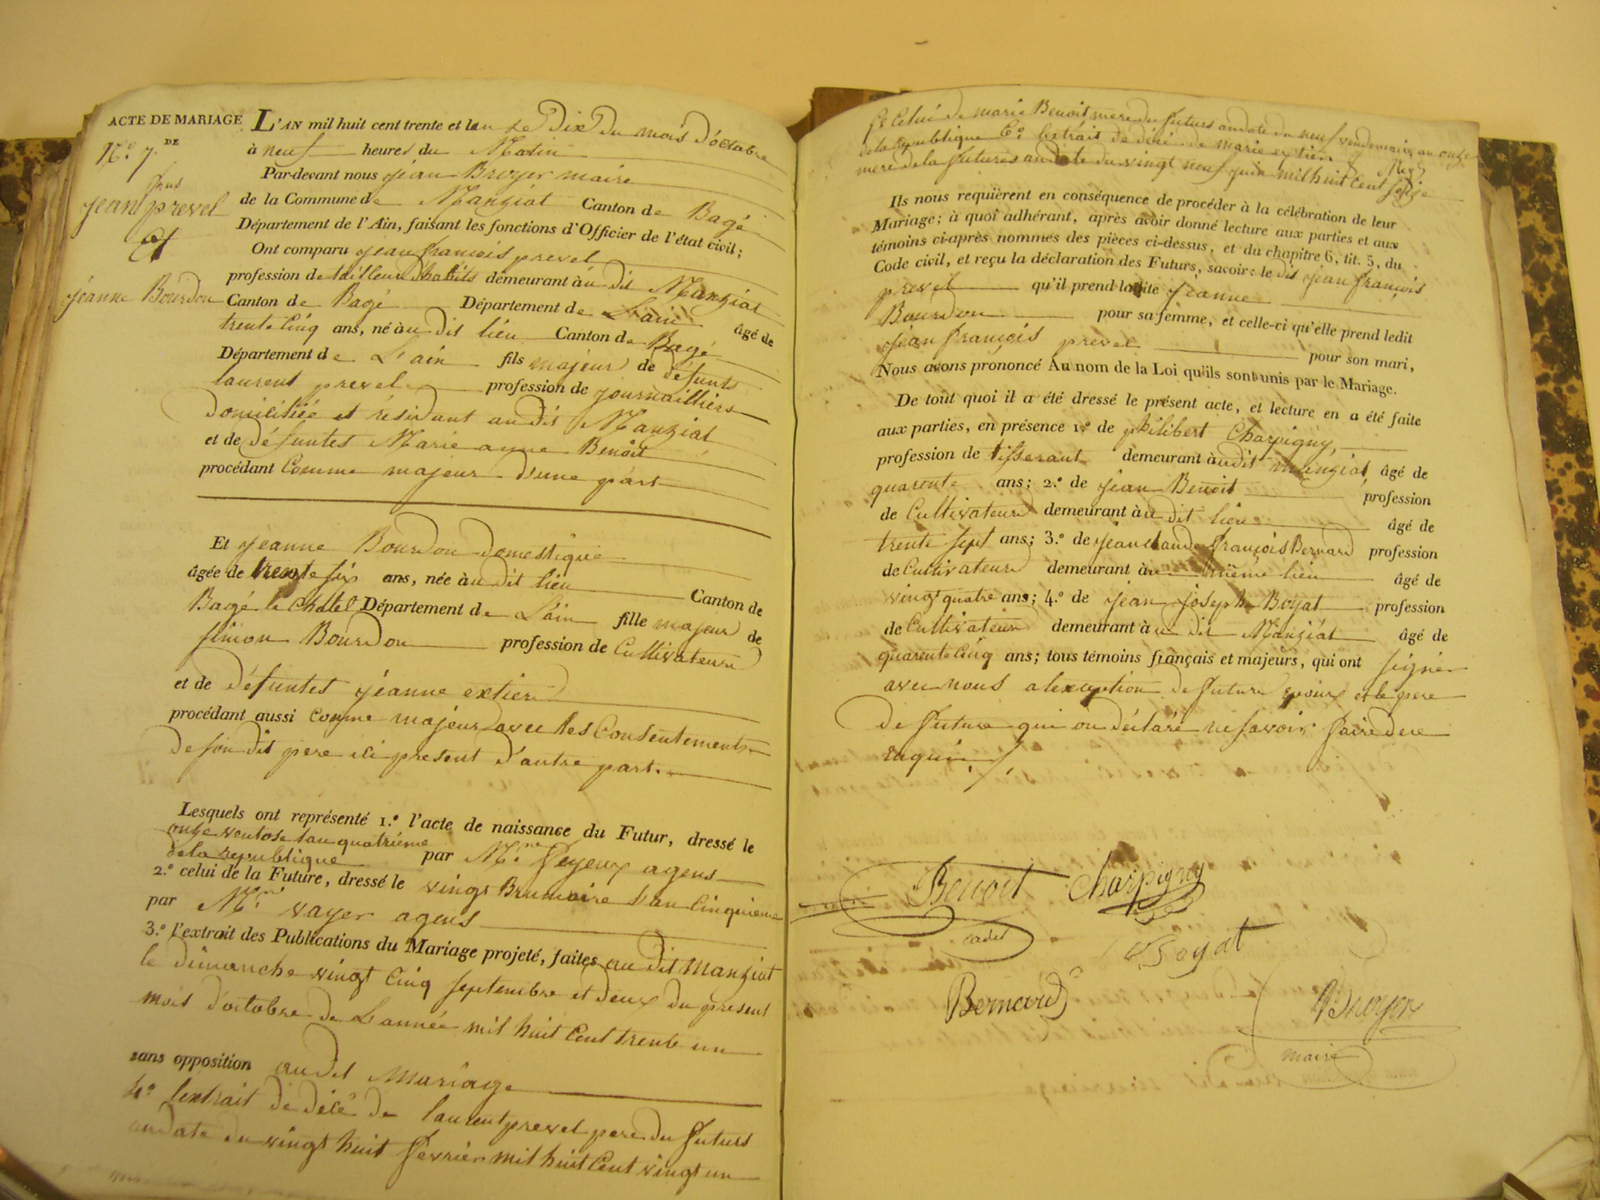 ACTE DE MARIAGE
N.° 7. DE
jean frans prevel
Et
jeanne Bourdon
L'AN mil huit cent trente et un Le Dix Du mois d'octobre
à neuf heures du Matin
Par-devant nous jean Broyer maire
de la Commune de Manziat Canton de Bagé
Département de l'Ain, faisant les fonctions d'Officier de l'état civil;
Ont comparu jean françois prevel
profession de tailleur d'habits demeurant au dit Manziat
Canton de Bagé Département de L'ain âgé de
trente Cinq ans, né au dit lieu Canton de Bagé
Département de L'ain fils majeur de défunt
laurent prevel profession de journailliers
domiciliée et résidant au dit Manziat
et de défuntes Marie anne Benoit
procédant Comme majeur d'une part
Et jeanne Bourdon domestique
âgée de trente six ans, née au dit lieu Canton de
Bagé le Chatel Département de L'ain fille majeur de
simon Bourdon profession de Cultivateur
et de défuntes jeanne extier
procédant aussi comme majeur avec les Consentements
de son dit pere ici present d'autre part.
Lesquels ont représenté 1.° l'acte de naissance du Futur, dressé le
onze ventose l'an quatrième
de la republique par M.r agens
2.° celui de la Future, dressé le vingt Brumaire l'an Cinquieme
par M.r vayer agens
3.° l'extrait des Publications du Mariage projeté, faites au dit Manziat
le dimanche vingt Cinq septembre et deux du present
mois d'octobre de L'année mil huit Cent trente un
sans opposition au dit Mariage
4.° l'extrait de décé de laurent prevel pere du futurs
au date du vingt huit fevrier mil huit Cent vingt un
5.° Celui de marie Benoit mere du futurs au date du neuf vendemaire an onze
de la republique 6.° l'extrait de décé de marie extier
mere de la futures au date du vingt neuf juin mil huit Cent seize
Ils nous requièrent en conséquence de procéder à la célébration de leur
Mariage; à quoi adhérant, après avoir donné lecture aux parties et aux
témoins ci-après nommés des pièces ci-dessus, et du chapitre 6, tit. 5, du
Code civil, et reçu la déclaration des Futurs, savoir: le dit jean françois
prevel qu'il prend ladite jeanne
Bourdon pour sa femme, et celle-ci qu'elle prend ledit
jean françois prevel pour son mari,
Nous avons prononcé Au nom de la Loi qu'ils sont unis par le Mariage.
De tout quoi il a été dressé le présent acte, et lecture en a été faite
aux parties, en présence 1.° de philibert Charpigny
profession de tisserant demeurant au dit manziat âgé de
quarente ans; 2.° de jean Benoit profession
de Cultivateur demeurant au dit lieu âgé de
trente sept ans; 3.° de jean claude françois Bernard profession
de Cultivateur demeurant au même lieu âgé de
vingt quatre ans; 4.° de jean joseph Boyat profession
de Cultivateur demeurant au dit Manziat âgé de
quarente Cinq ans; tous témoins français et majeurs, qui ont signer
avec nous a l'exception de future epoux et le pere
De future qui on déclaré ne savoir faire de ce
enquis
Benoit Charpigny
cadet
Boyat
Bernard Broyer
maire